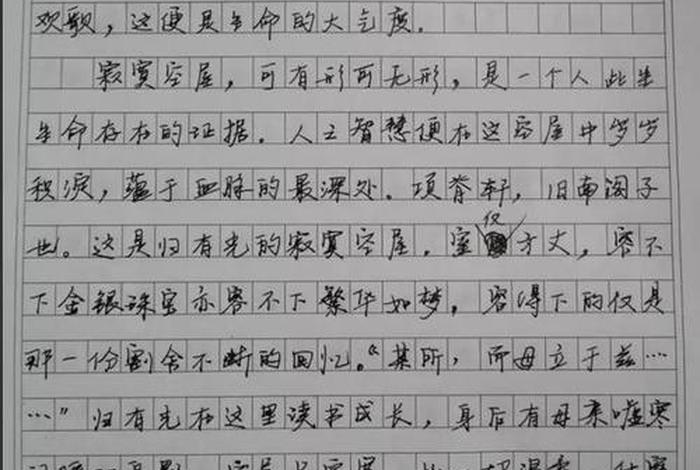 欢歌，这便是生命的大气度。
寂寞空屋，可有形可无形，是一个人此生
生命存在的证据。人之智慧便在这空屋中岁岁
积淀，蕴于血脉的最深处。项脊轩，旧南阁子
也。这是归有光的寂寞空屋。室仅方丈，容不
下金银珠宝亦容不下繁华如梦，容得下的仅是
那一份割舍不断的回忆。“某所，而母立于兹……
……”归有光在这里读书成长，身后有母亲嘘寒